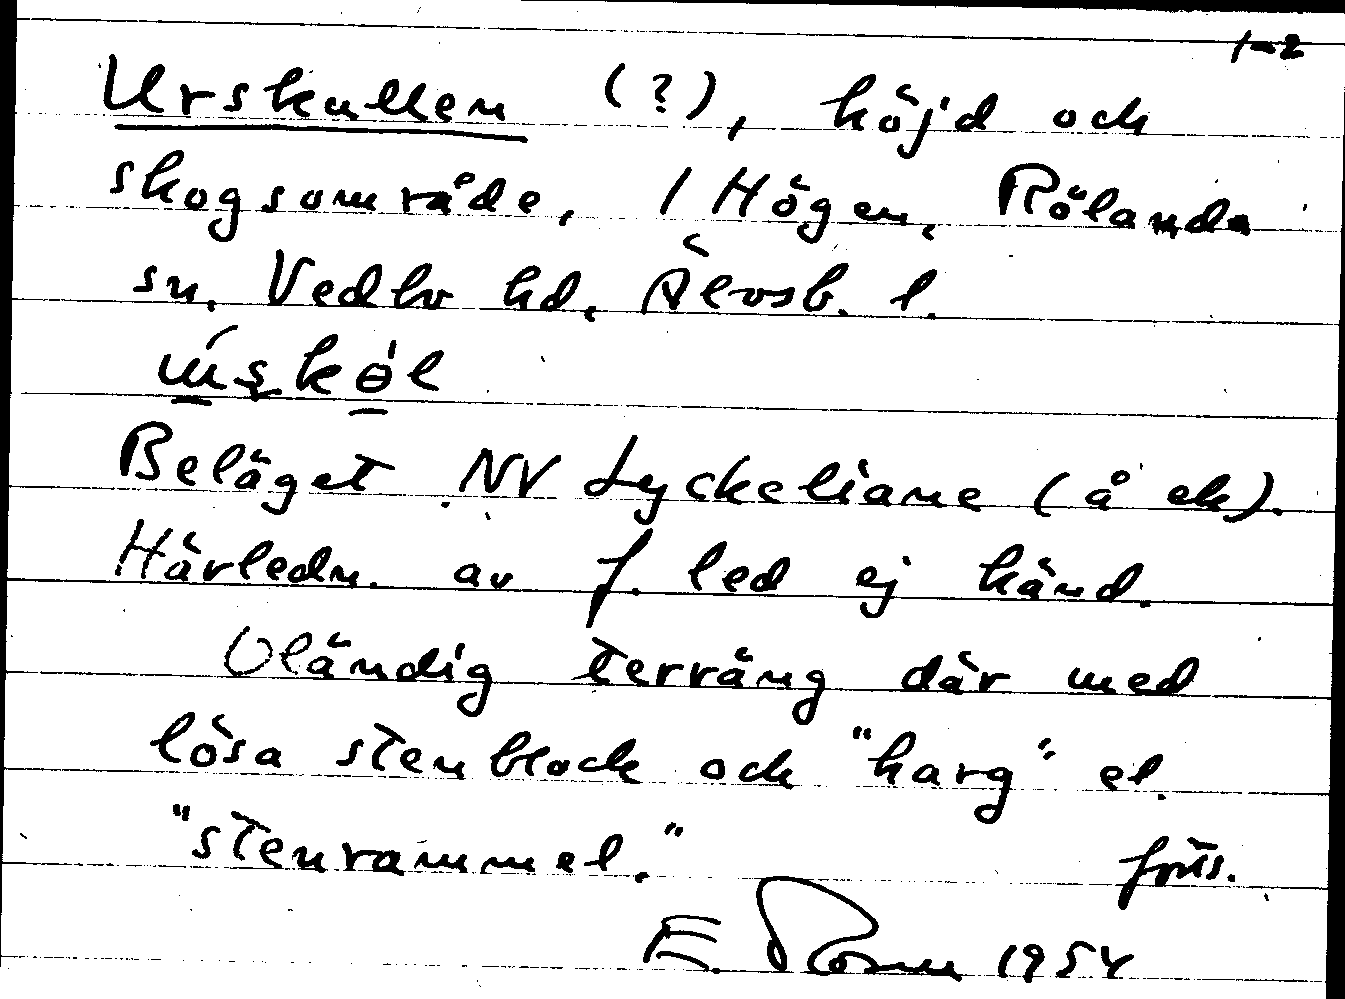 1-2
Urskullen (?), höjd och
skogsområde, 1 Högen, Rölanda
sn, Vedbo hd, Älvsb. l.
Beläget NV Lyckeliane (å ek).
Härledn. av f. led ej känd.
Oländig terräng där med
lösa stenblock och "harg" el.
"stenrammel."
förts.
E. 1954